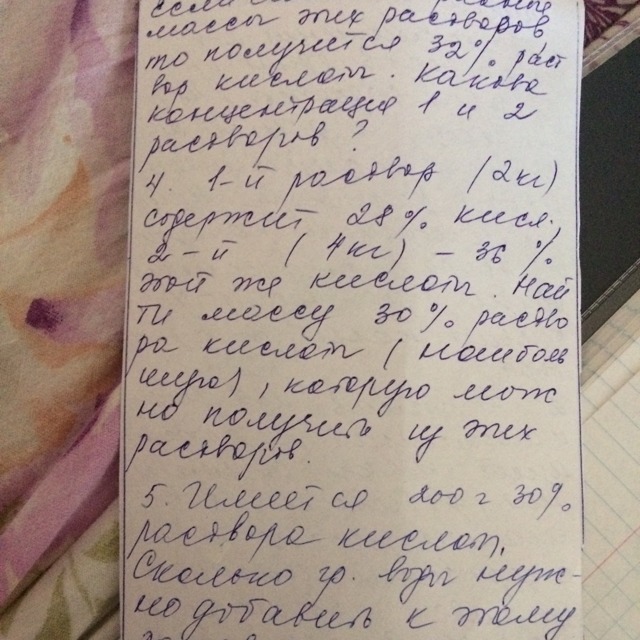 массы этих растворов
то получится 32% рас
вор кислоты. Какова
концентрация 1 и 2
растворов?
4. 1-й раствор (2кг)
содержит 28% кисл.
2-й (4кг) - 36%
этой же кислоты. Най
ти массу 30% раство
ра кислоты (наиболь
шую), которую мож
но получить из этих
растворов.
5. Имеется 200 г 30%
раствора кислоты.
Сколько гр. воды нуж-
но добавить к этому